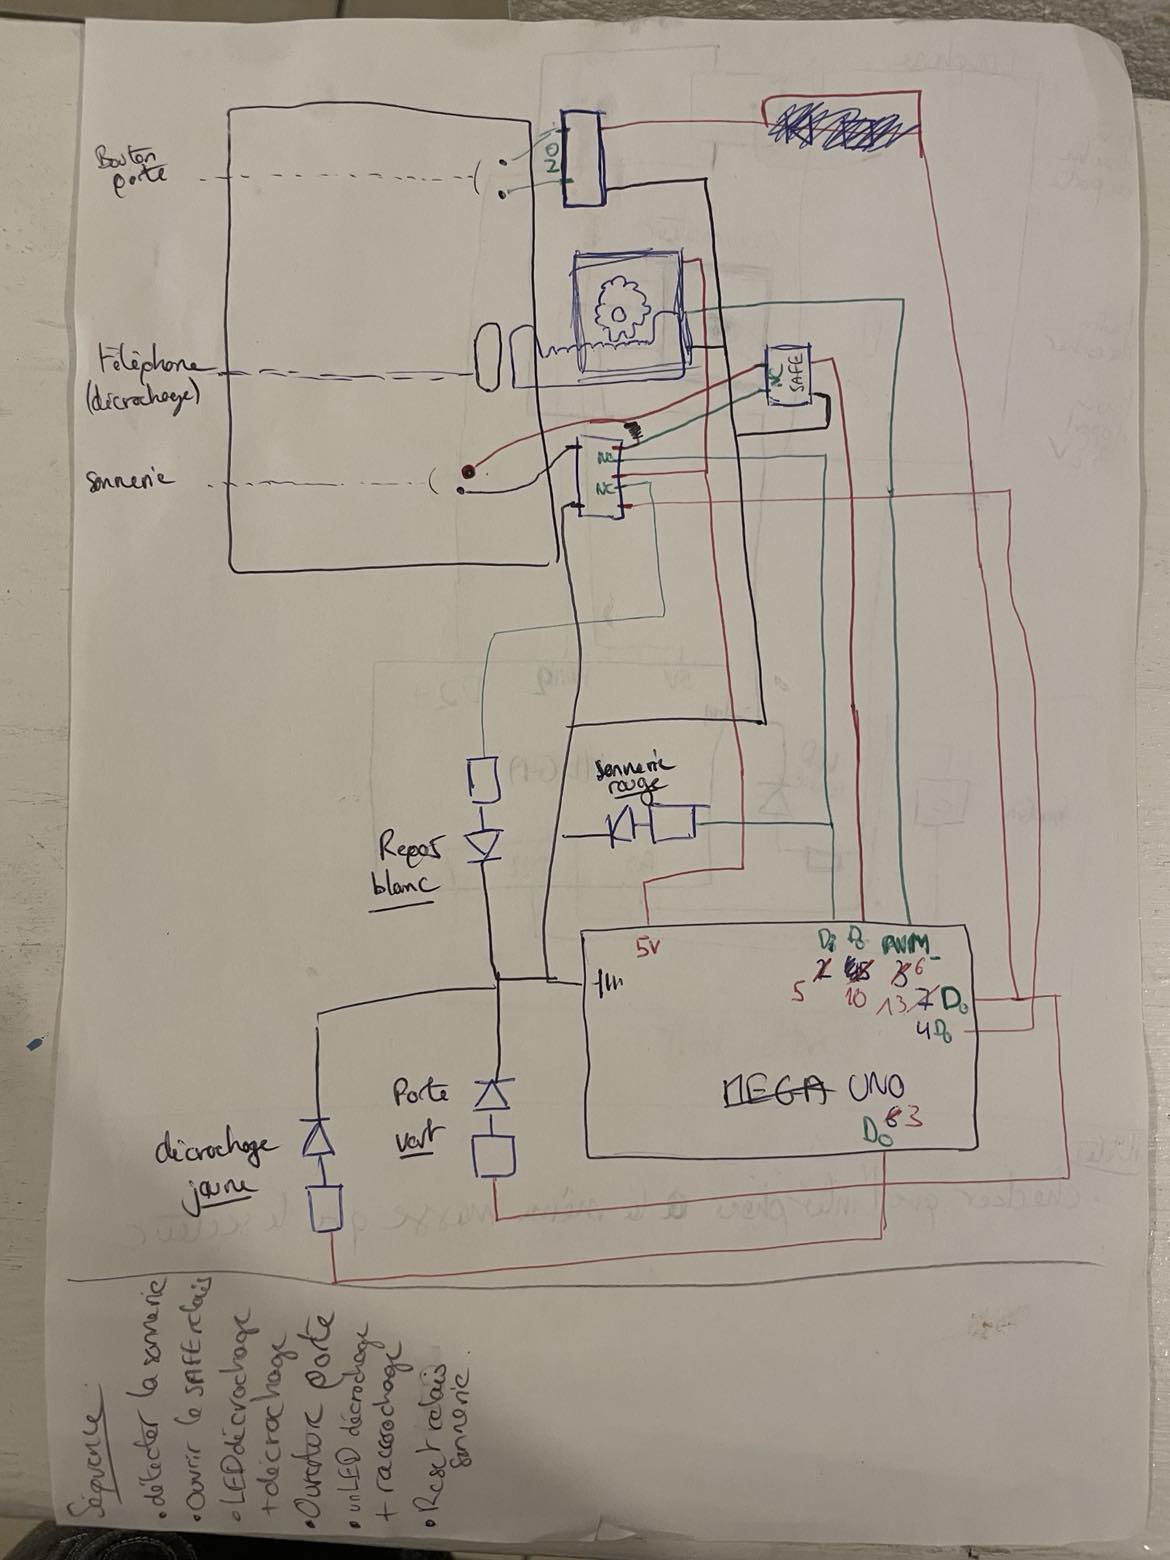 Bouton
porte
NO
Téléphone
(décrochage)
NC
SAFE
Sonnerie
NC
NC
Sonnerie
rouge
Repos
blanc
5V
Di Do PWM
5 10 13 6
7 Do
4 Do
MEGA UNO
Do 3
Porte
vert
décrochage
jaune
Séquence
• détecter la sonnerie
• Ouvrir le SAFE relais
• LED décrochage
+ décrochage
• Ouverture porte
• unLED décrochage
+ raccrochage
• Reset relais
sonnerie